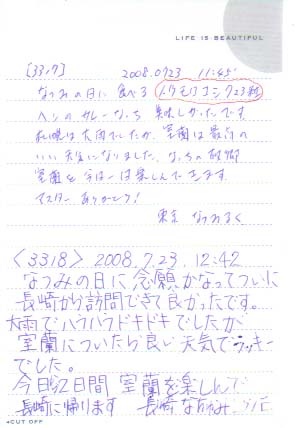 LIFE IS BEAUTIFUL
[3317] 2008.0723 11:45
なつみの日に食べる
美味しかったです。
札幌は大雨でしたが、室蘭は最高の
いい天気になりました。なっちの故郷
室蘭を今日は一日楽しんできます。
マスターありがとう!
東京
<3318> 2008.7.23. 12:42
なつみの日に念願かなってついに
長崎から訪問できて良かったです。
大雨でハラハラドキドキでしたが
室蘭についたら良い天気でラッキー
でした。
今日は2日間 室蘭を楽しんで
長崎に帰ります 長崎
◂CUT OFF